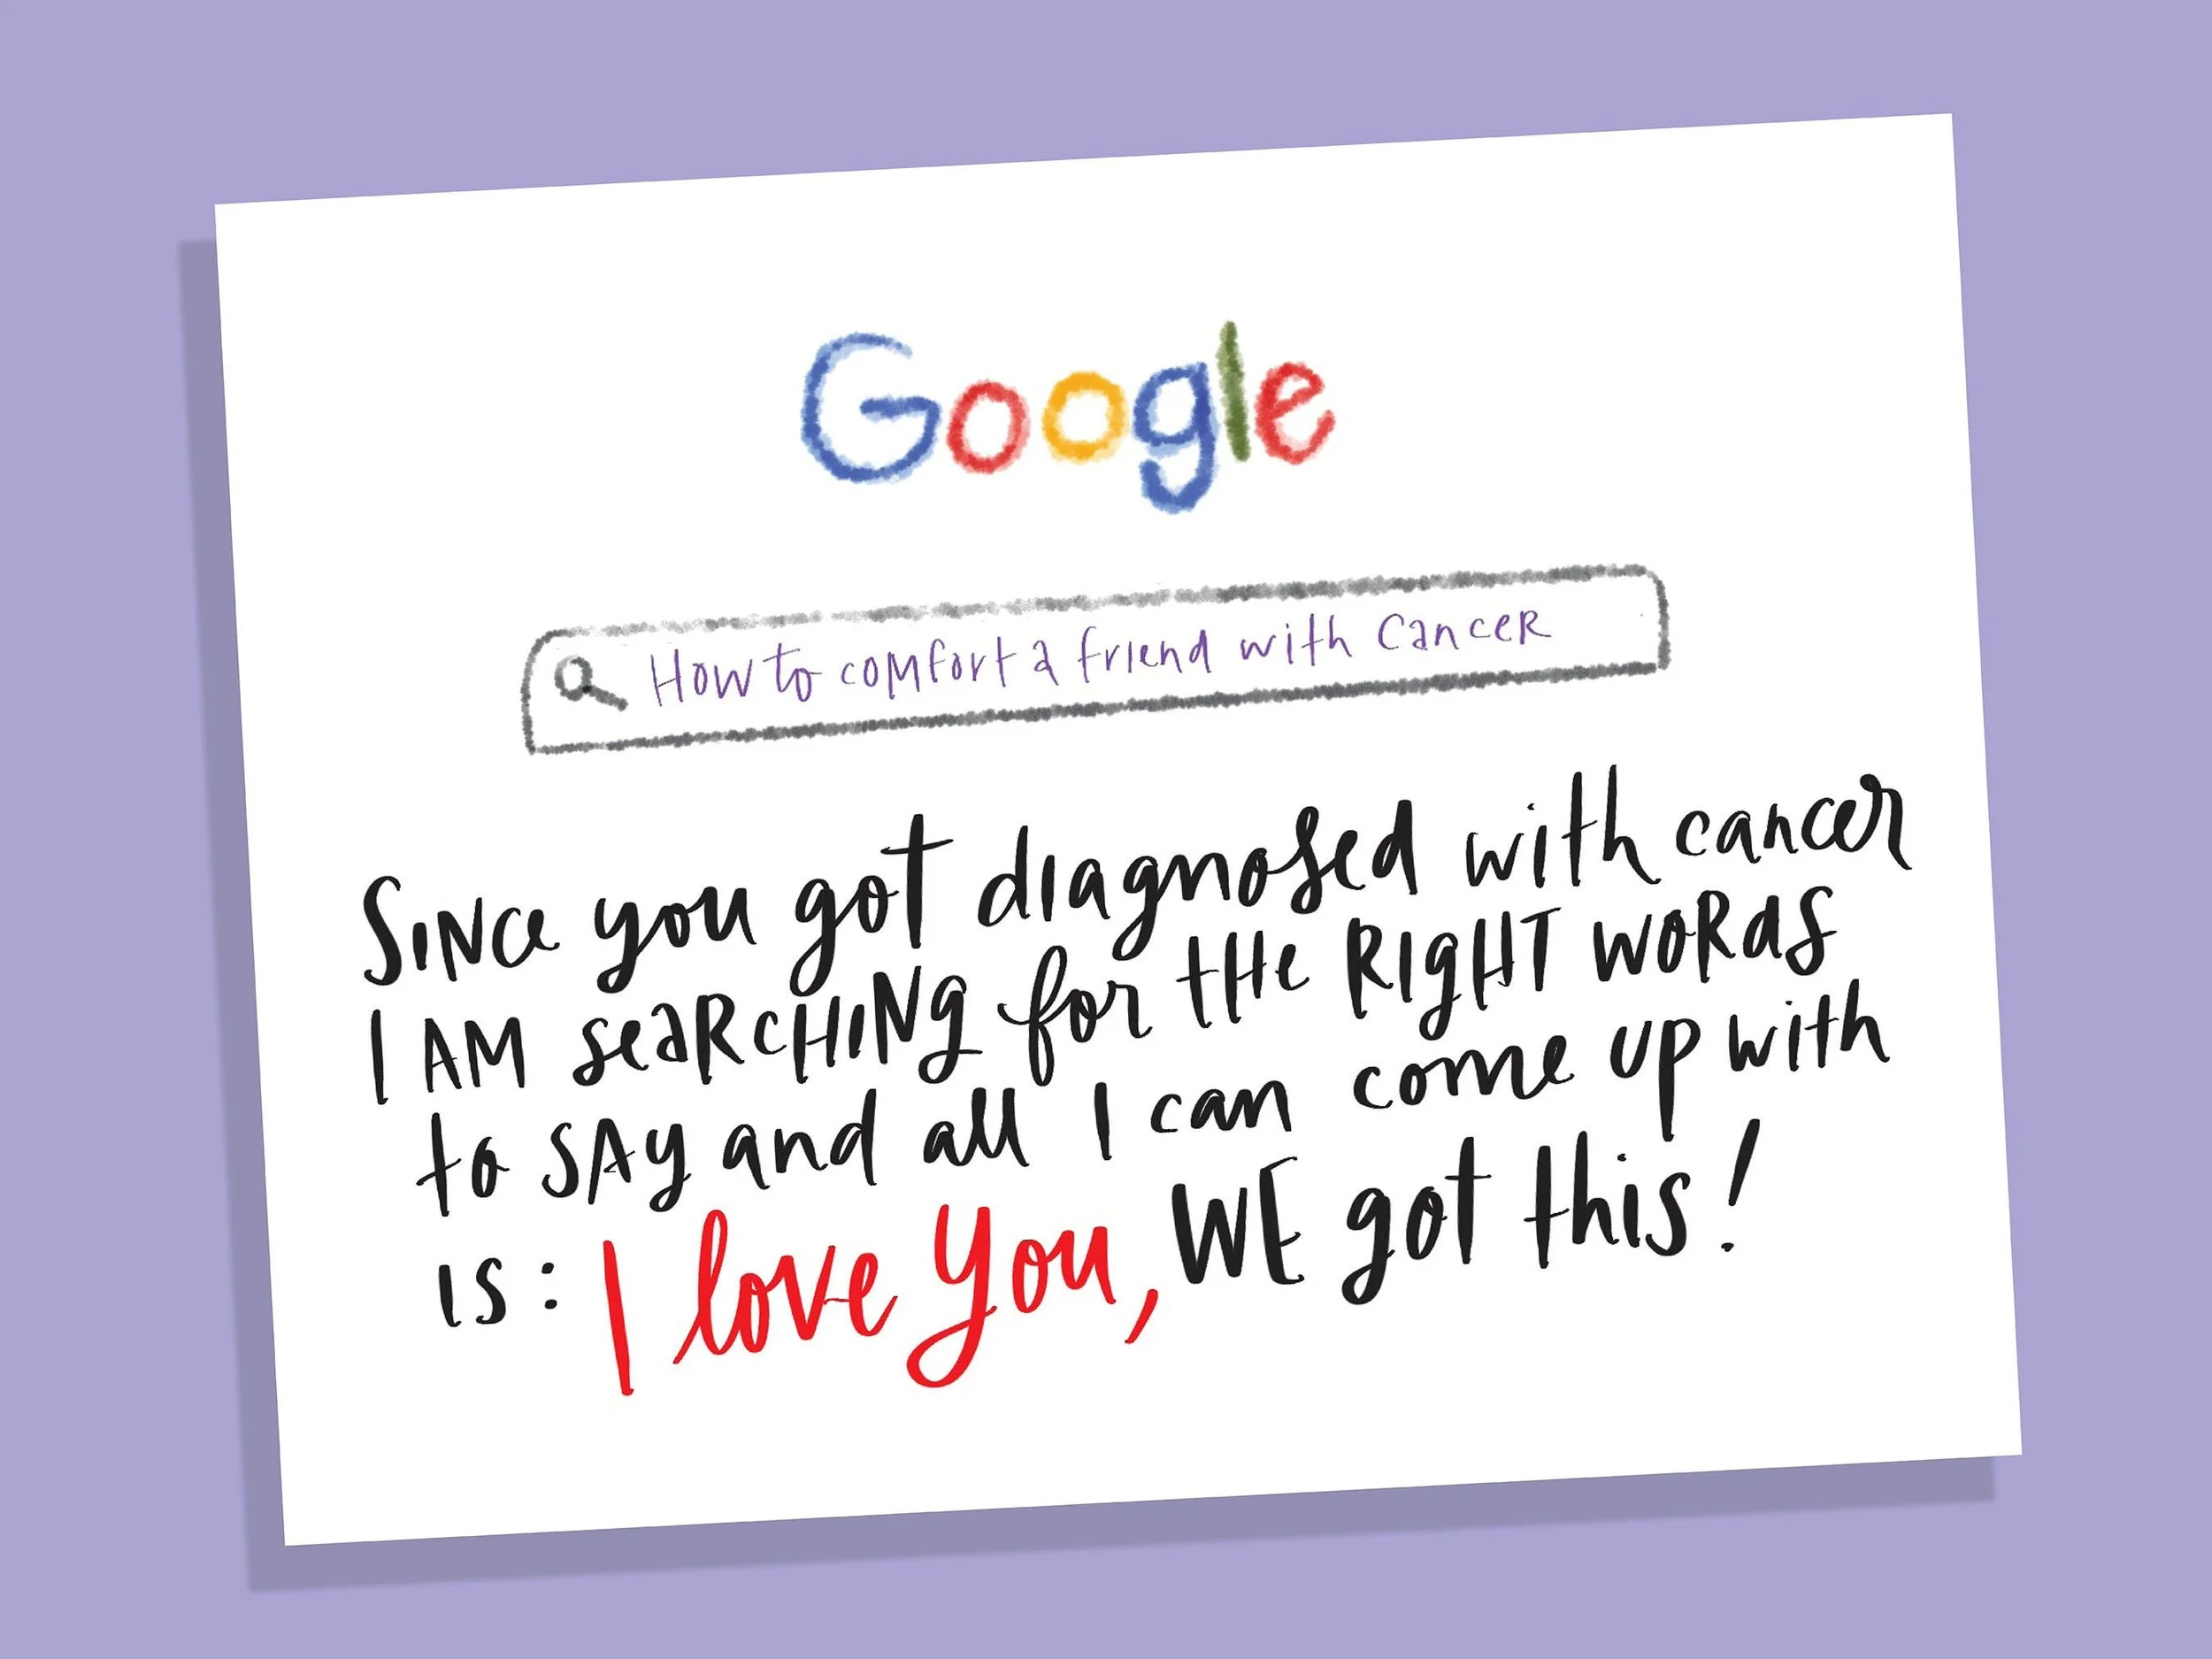 Google
How to comfort a friend with cancer
Since you got diagnosed with cancer
I AM seaRcHINg for tHe RIgHT woRds
to SAy and all I can come up with
is: I love you, WE got this!